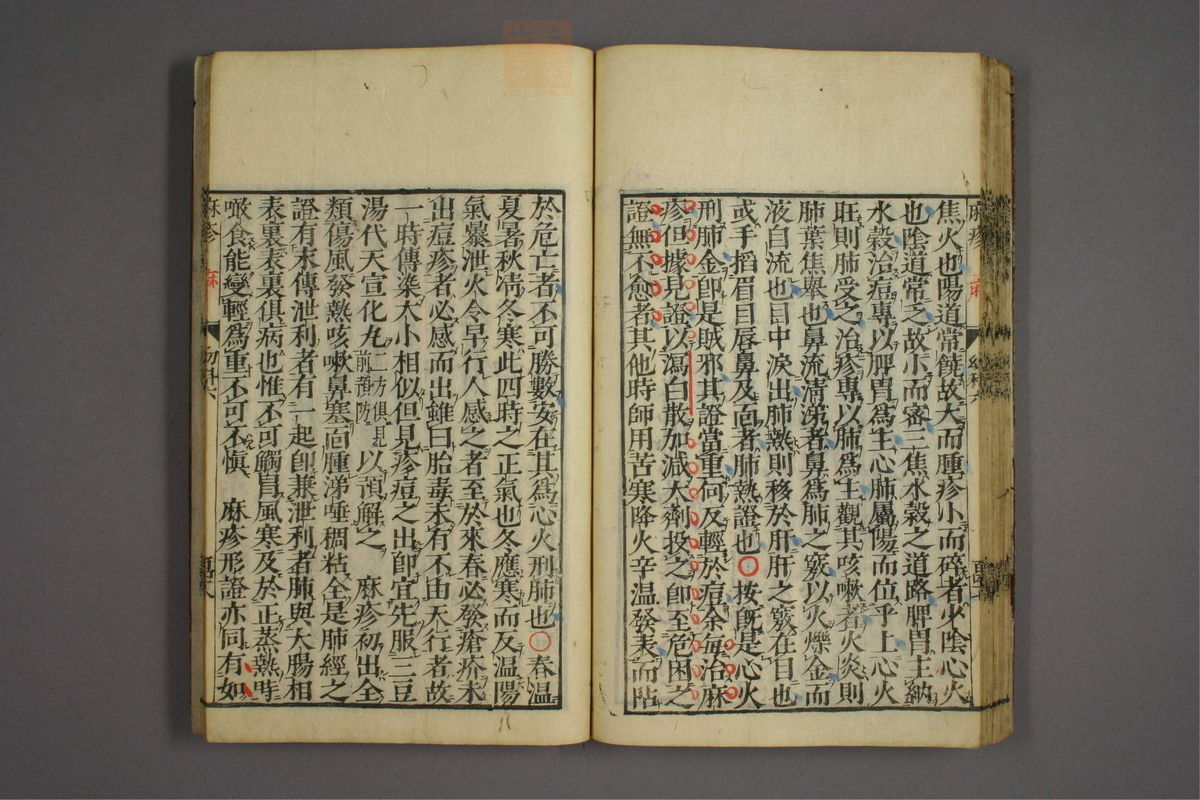 焦火也陽道常饒故大而腫疹小而碎者少陰心火
也陰道常乏故小而密三焦水穀之道路脾胃主納
水穀治痘專以脾胃爲主心肺屬陽而位乎上心火
旺則肺受之治疹專以肺爲主觀其咳嗽者火炎則
肺葉焦舉也鼻流清涕者鼻爲肺之竅以火爍金而
液自流也目中淚出肺熱則移於肝肝之竅在目也
或手搯眉目唇鼻及面者肺熱證也〇按既是心火
刑肺金卽是賊邪其證當重何反輕於痘余每治麻
疹但據見證以瀉白散加減大劑投之卽至危困之
證無不愈者其他時師用苦寒降火辛温發表而陷
於危亡者不可勝數安在其爲心火刑肺也〇春温
夏暑秋凊冬寒此四時之正氣也冬應寒而反温陽
氣暴泄火令早行人感之者至於來春必發瘡疥未
出痘疹者必感而出雖曰胎毒未有不由天行者故
一時傳染大小相似但見疹痘之出卽宜先服三豆
湯代天宣化丸二方俱見前預防以預解之 麻疹初出全
類傷風發熱咳嗽鼻塞面腫涕唾稠粘全是肺經之
證有未傳泄利者有一起卽兼泄利者肺與大腸相
表裏表裏俱病也惟不可觸冒風寒及於正蒸熱時
噉食能變輕爲重不可不慎 麻疹形證亦同有如
麻疹
麻
幼科六
麻疹
麻